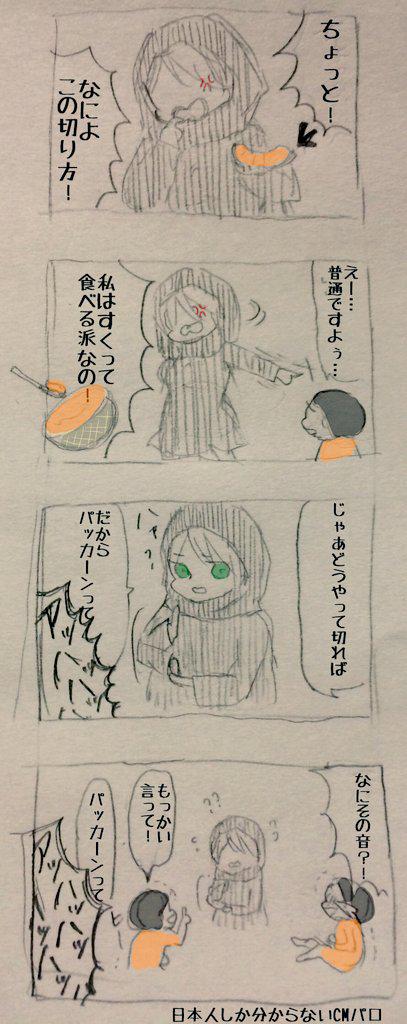 ちょっと!
なによ
この切り方!
えー…
普通ですよぅ…
私はすくって
食べる派なの!
じゃあどうやって切れば
ハッ
だから
パッカーンって
アッハッハッ
なにその音?!
??
もっかい
言って!
パッカーンって
アッハッハッハッ
日本人しか分からないCMパロ